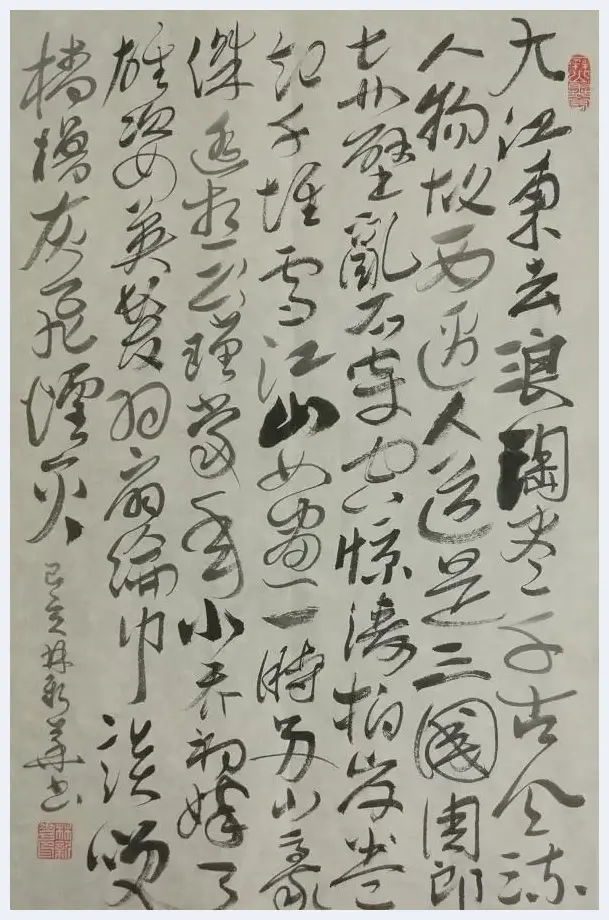 大江東去浪淘盡千古風流
人物故西邊人道是三國周郎
赤壁亂石穿空惊濤拍岸卷
起千堆雪江山如畫一時多少豪
傑遙想公瑾當年小喬初嫁了
雄姿英發羽扇綸巾談笑
檣櫓灰飛煙灭
己亥林新華書